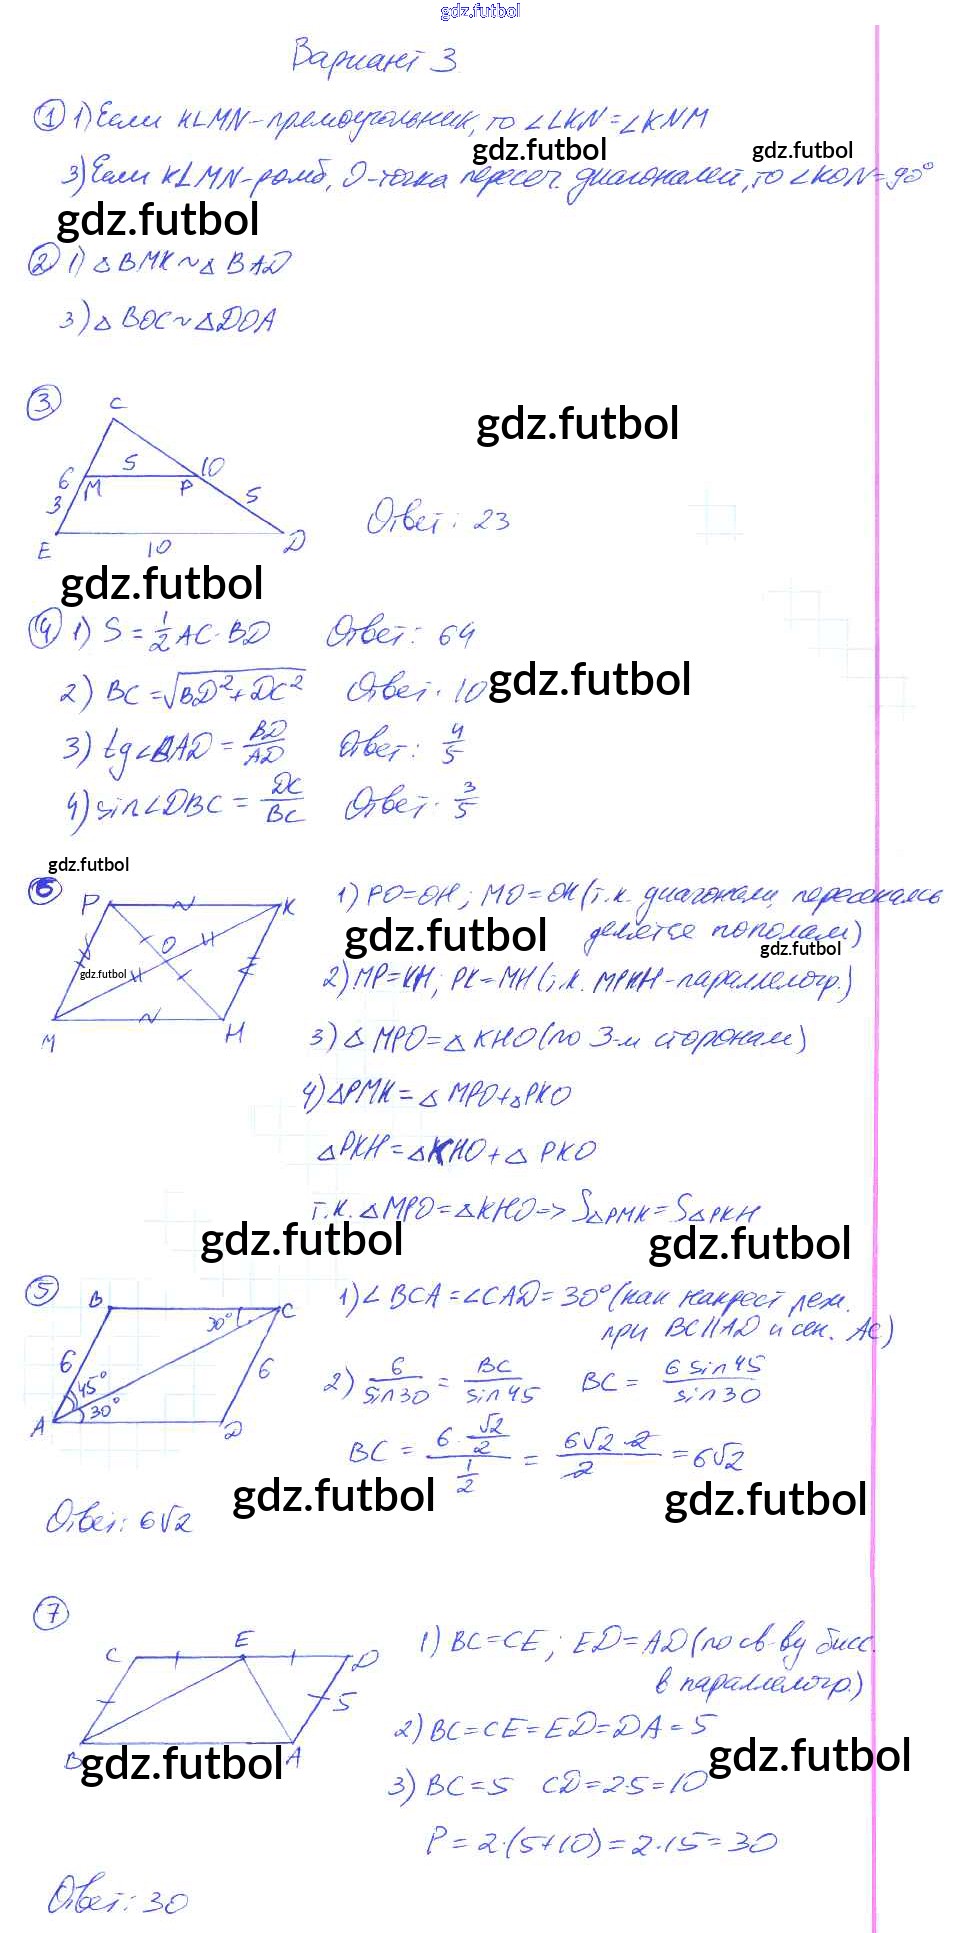 gdz.futbol
Вариант 3
① 1) Если KLMN - прямоугольник, то ∠LKN = ∠KNM
gdz.futbol gdz.futbol
3) Если KLMN - ромб, O - точка пересеч. диагоналей, то ∠KON = 90°
gdz.futbol
② 1) △ BMK ~ △ BAD
3) △ BOC ~ △ DOA
③
C
gdz.futbol
6 5 10
M P
3 5
Ответ: 23
E 10 D
gdz.futbol
④ 1) S = 1/2 AC · BD Ответ: 64
2) BC = √(BD² + DC²) Ответ: 10
gdz.futbol
3) tg∠BAD = BD/AD Ответ: 4/5
4) sin∠DBC = DC/BC Ответ: 3/5
gdz.futbol
⑥ P K 1) PO = OH; MO = OK (т.к. диагонали, пересекаясь
gdz.futbol делятся пополам)
gdz.futbol
O
gdz.futbol
2) MP = KH; PK = MH (т.к. MPKH - параллелогр.)
M H
3) △ MPO = △ KHO (по 3-м сторонам)
4) △PMK = △ MPO + △PKO
△PKH = △KHO + △ PKO
т.к. △MPO = △KHO => S△PMK = S△PKH
gdz.futbol gdz.futbol
⑤ B C 1) ∠ BCA = ∠CAD = 30° (как накрест леж.
30° при BC || AD и сек. AC)
6 6
45°
30°
A D
2) 6/sin30 = BC/sin45 BC = 6 sin45/sin30
BC = (6 · √2/2)/(1/2) = 6√2 · 2/2 = 6√2
gdz.futbol gdz.futbol
Ответ: 6√2
⑦
C E D 1) BC = CE; ED = AD (по св-ву бисс.
в параллелогр.)
5
2) BC = CE = ED = DA = 5
B A
gdz.futbol gdz.futbol
3) BC = 5 CD = 2·5 = 10
P = 2·(5+10) = 2·15 = 30
Ответ: 30